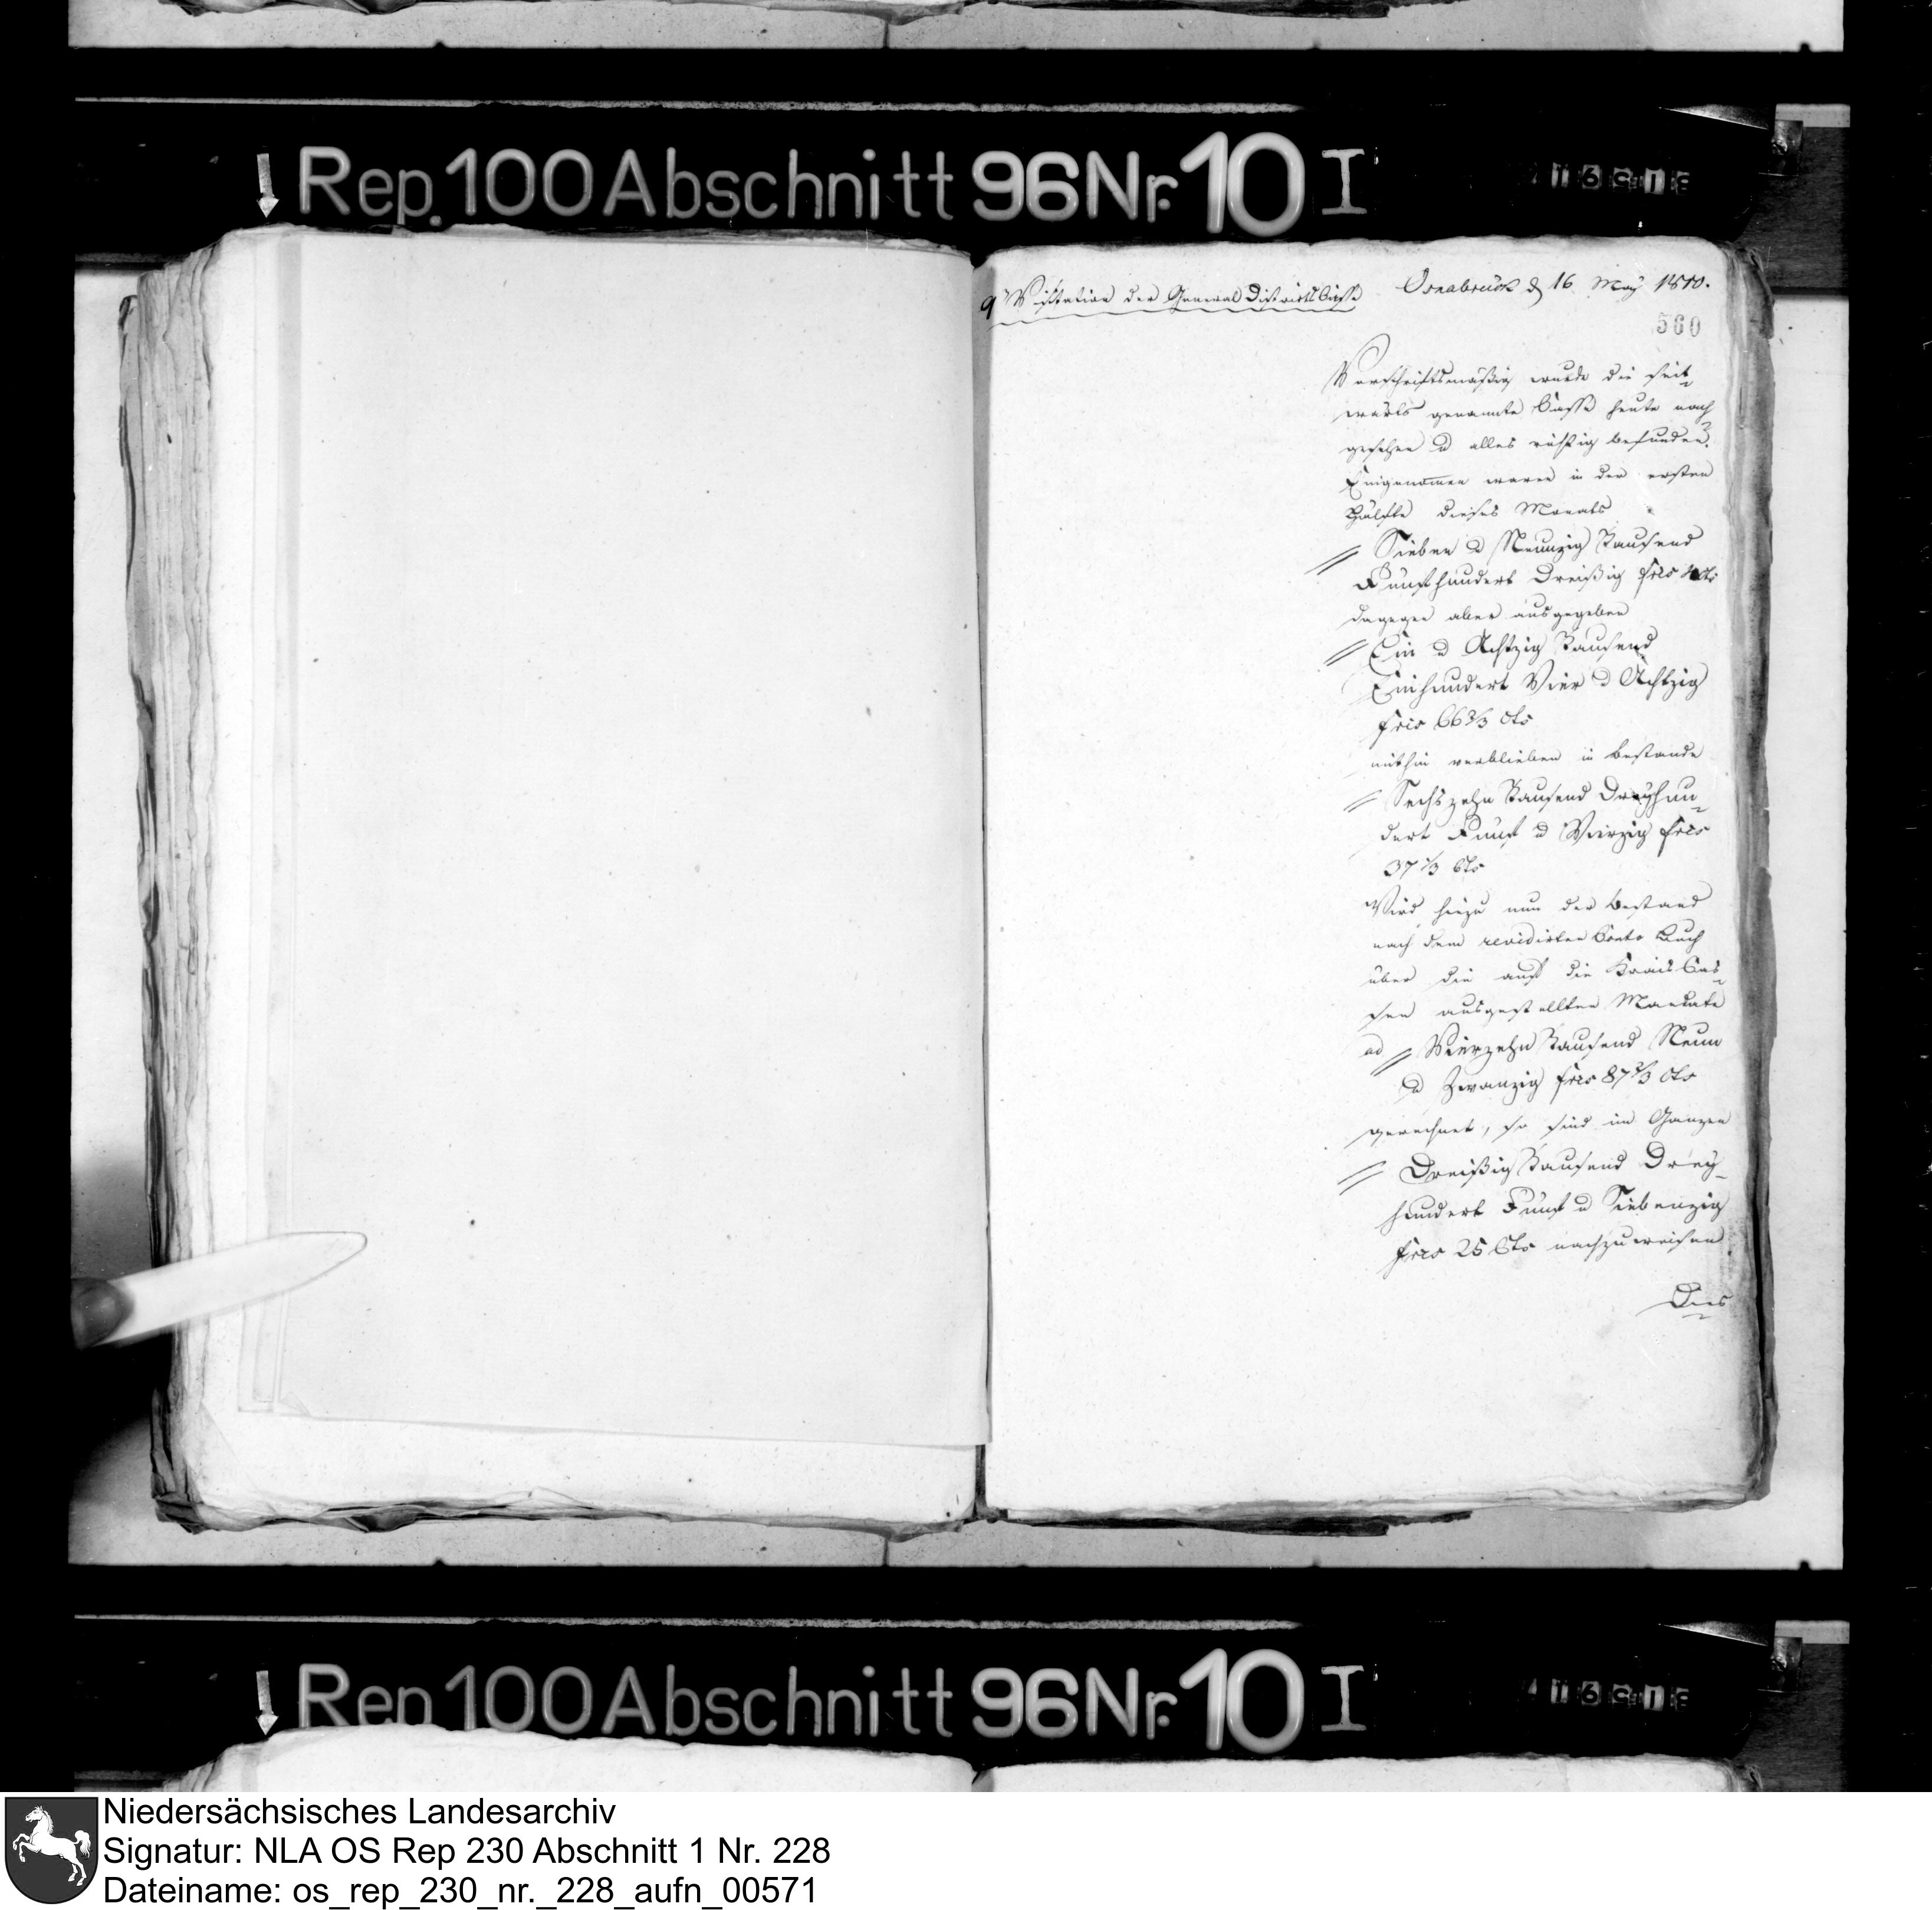 Rep. 100 Abschnitt 96 Nr. 10 I
Visitation der General Districts Casse
Osnabrück d 16 May 1810.
560
Vorschriftsmäßig wurde die seit-
wärts genannte Casse heute nach
gesehen u alles richtig befunden.
Eingenommen waren in der ersten
Hälfte dieses Monats
// Sieben u Neunzig Tausend
Fünfhundert Dreißig frcs 4 Cts
dagegen aber ausgegeben
// Ein u Achtzig Tausend
Einhundert Vier u Achtzig
frcs 66 2/3 Cts
mithin verblieben in Bestande
// Sechszehn Tausend Dreyhun-
dert Fünf u Vierzig frcs
37 1/3 Cts
Wird hiezu nun der Bestand
nach dem revidirten Conto Buch
über die auf die Kreis Cas-
sen ausgestellten Mandate
ad // Vierzehn Tausend Neun
u Zwanzig frcs 87 2/3 Cts
gerechnet, so sind im Ganzen
// Dreißig Tausend Drey-
hundert Fünf u Siebenzig
frcs 25 Cts nachzuweisen.
Dies
Rep 100 Abschnitt 96 Nr. 10 I
Niedersächsisches Landesarchiv
Signatur: NLA OS Rep 230 Abschnitt 1 Nr. 228
Dateiname: os_rep_230_nr._228_aufn_00571